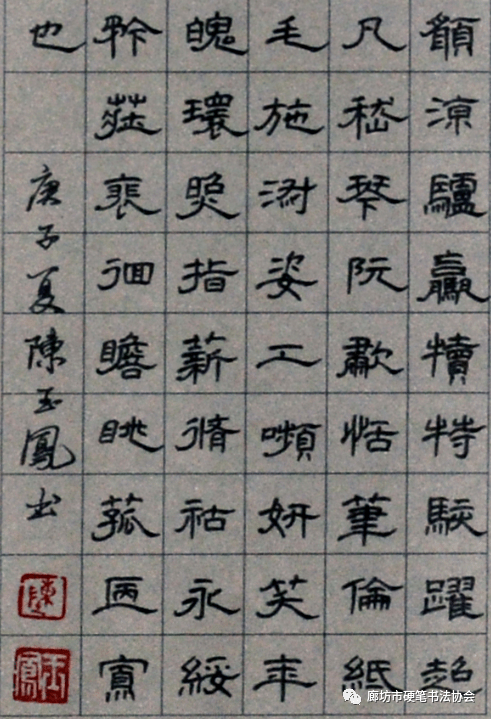 願涼驢驘犢特駭躍超
丸嵇琴阮歗恬筆倫紙
毛施淑姿工嚬妍笑年
魄環照指薪脩祜永綏
矜莊裴徊瞻眺孤陋寡
也
庚子夏陳玉鳳书
陳
玉鳳
廊坊市硬笔书法协会